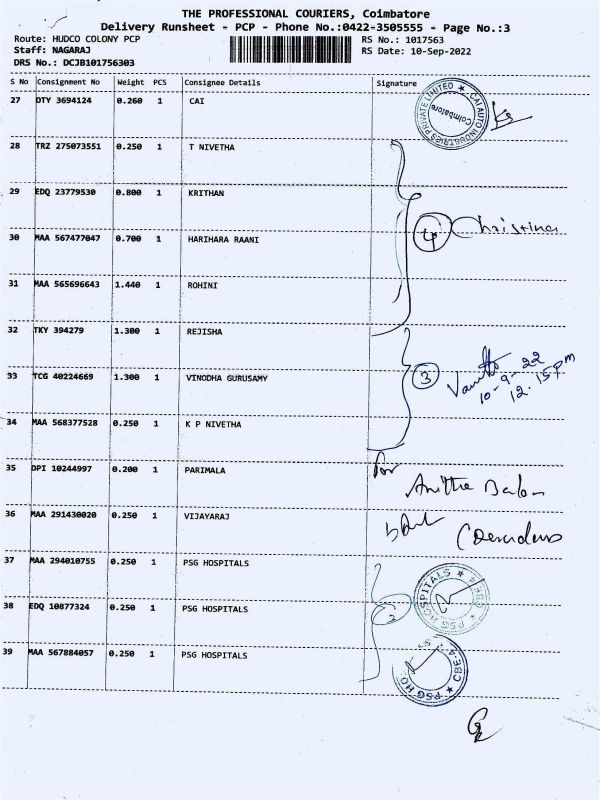 THE PROFESSIONAL COURIERS, Coimbatore
Delivery Runsheet - PCP - Phone No.:0422-3505555 - Page No.:3
Route: HUDCO COLONY PCP RS No.: 1017563
Staff: NAGARAJ RS Date: 10-Sep-2022
DRS No.: DCJB101756303
S No Consignment No Weight PCS Consignee Details Signature
27 DTY 3694124 0.260 1 CAI
CAI AUTO INDUSTRIES PRIVATE LIMITED ★
Coimbatore
28 TRZ 275073551 0.250 1 T NIVETHA
29 EDQ 23779530 0.800 1 KRITHAN
Christina
30 MAA 567477047 0.700 1 HARIHARA RAANI
31 MAA 565696643 1.440 1 ROHINI
32 TKY 394279 1.300 1 REJISHA
33 TCG 40224669 1.300 1 VINODHA GURUSAMY
3
10-9-22
12.15pm
34 MAA 568377528 0.250 1 K P NIVETHA
35 DPI 10244997 0.200 1 PARIMALA
for
Anitha
36 MAA 291430020 0.250 1 VIJAYARAJ
37 MAA 294010755 0.250 1 PSG HOSPITALS
38 EDQ 10877324 0.250 1 PSG HOSPITALS
★ PSG HOSPITALS ★ CBE-4
39 MAA 567884057 0.250 1 PSG HOSPITALS
★ PSG HO CBE-4